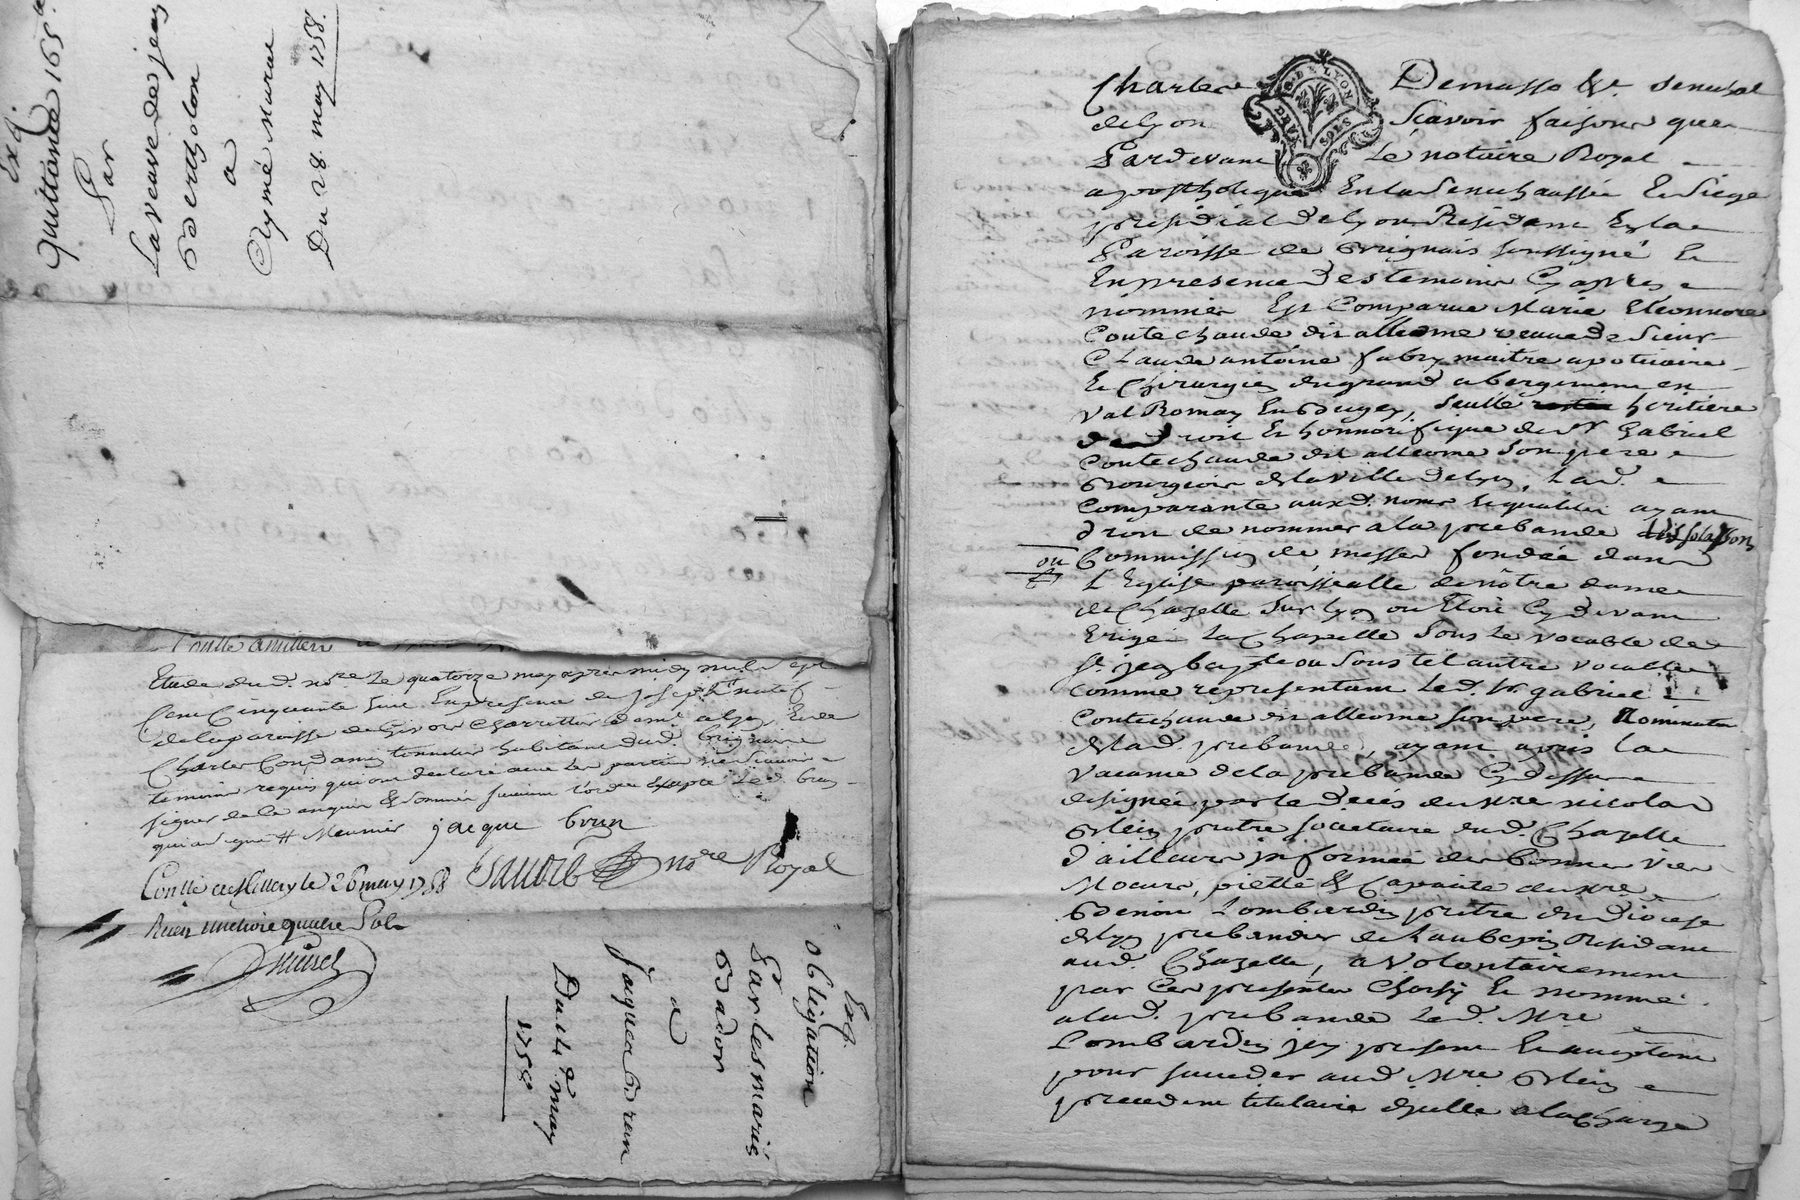 Exq
Quittance 165#
Par
La veuve de jean
Bertholon
a
Aymé murat
Du 28. may 1758.
Etude dud. nore. Le quatorze may apres midy mil sept
Cent Cinquante huit En presence de joseph
de la paroisse de Givors Charretier a Lyon Et de
Charles tonnelier habitant dud. Brignais
temoins requis qui ont declaré avec les parties ne scavoir
signer de ce enquis & sommés suivant l'ordce Excepté led. brun
jacque brun
nore Royal
Conllé a Millery le 26 may 1758
Receu une livre quatre Sols
Exq.
obligation
Par les mariés
Badon
a
Jaques Brun
Du 14e. may
1758
G. DE LYON
SOLS
Charles Demasso &r. senechal
de Lyon Scavoir faisons que
Pardevant Le notaire Royal
apostholique En la Senechaussée Et Siege
presidial de Lyon Residant En la
Paroisse de Brignais soussigné Et
En presence des temoins Cy apres
nommés Est Comparue Marie Eleonnore
Contechaude dit alleome veuve de Sieur
Claude antoine fabry maitre apoticaire
Et Chirurgien du grand abergement en
Val Romay En Bugey, seulle heritiere
de droit Et honnorifique de sr Gabriel
Contechaude dit alleome Son pere
Bourgeois de la Ville de Lyon, Lad.
Comparante auxd. noms Et qualités ayant
droit de nommer a la prebande
ou Commission de messes fondée dans
L'Eglise paroissialle de nôtre dame
de Chazelle Sur Lyon ou Etoit Cy devant
Erigé La Chapelle Sous Le vocable de
St. jean baptiste ou Sous tel autre vocable
Comme representant Led. Sr. gabriel
Contechaude dit alleome son pere, Nominateur
de lad. prebande, ayant apris la
vacance de la prebande Cy dessus
designée par le Decés de Mre nicolas
prêtre societaire dud. Chazelle
d'ailleurs informée des bonnes vies
Moeurs, pietté & Capacité de Mre
Benoit Lombardin prêtre du Diocese
de Lyon prebandier de Laubepin Residant
aud. Chazelle, a volontairement
par Ces presentes Choisy Et nommé
a lad. prebande Led. Mre
Lombardin jcy present Et acceptant
pour succeder aud. Mre
precedent titulaire d'jcelle a la Charge